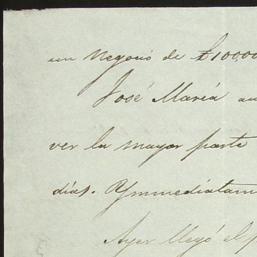 un negocio de £100.00
José María au
ver la mayor parte
dias. Ynmediatam
Ayer llegó el p